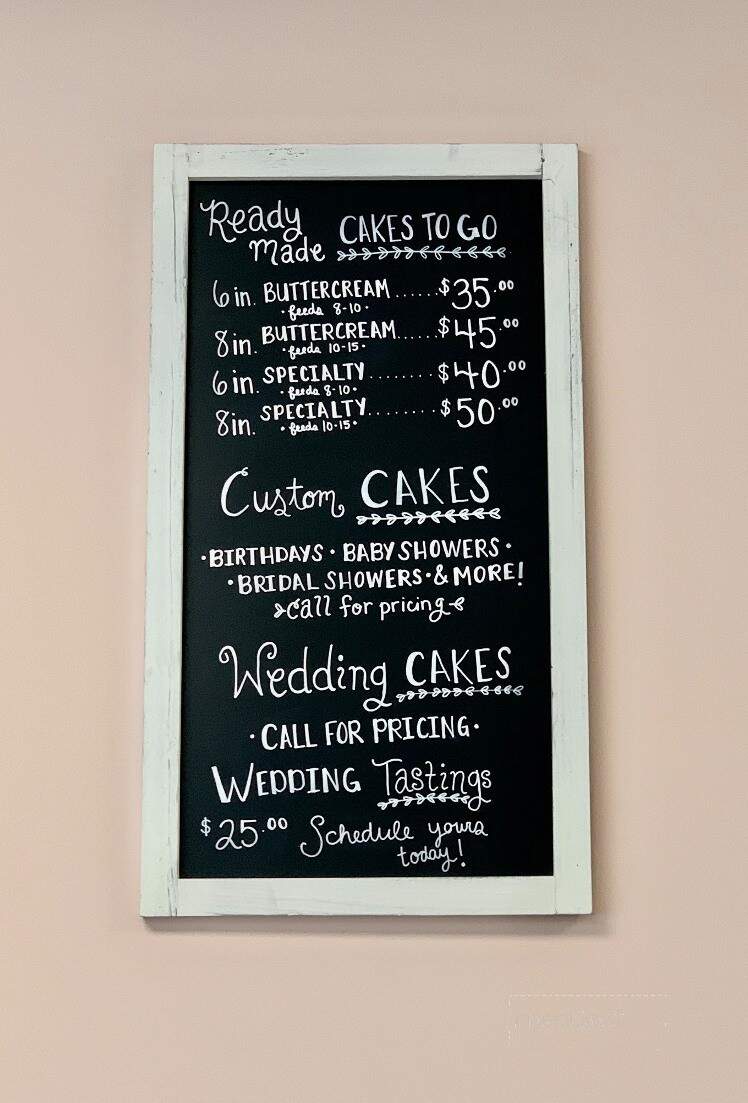 Ready Made CAKES TO GO
6 in. BUTTERCREAM ...... $35.00
• feeds 8-10 •
8 in. BUTTERCREAM ...... $45.00
• feeds 10-15 •
6 in. SPECIALTY ........ $40.00
• feeds 8-10 •
8 in. SPECIALTY ........ $50.00
• feeds 10-15 •
Custom CAKES
• BIRTHDAYS • BABY SHOWERS •
• BRIDAL SHOWERS • & MORE!
call for pricing
Wedding CAKES
• CALL FOR PRICING •
WEDDING Tastings
$25.00 Schedule yours
today!